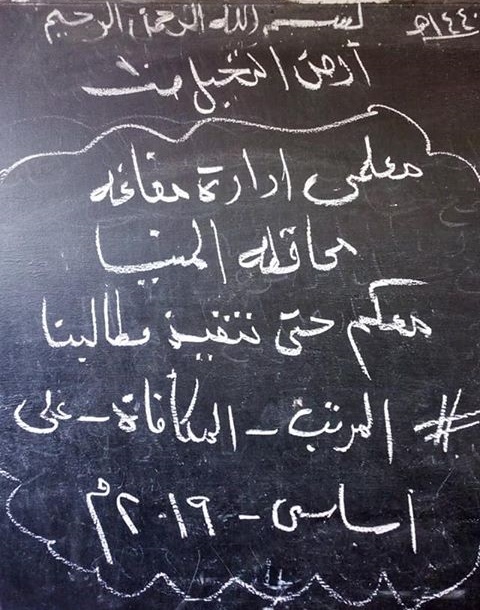 بسم الله الرحمن الرحيم ١٤٤٠هـ
أرض النخيل
معلمى ادارة مغاغه
محافظه المنيا
معكم حتى تنفيذ مطالبنا
# المرتب - المكافأة - على
اساسى - ٢٠١٩م